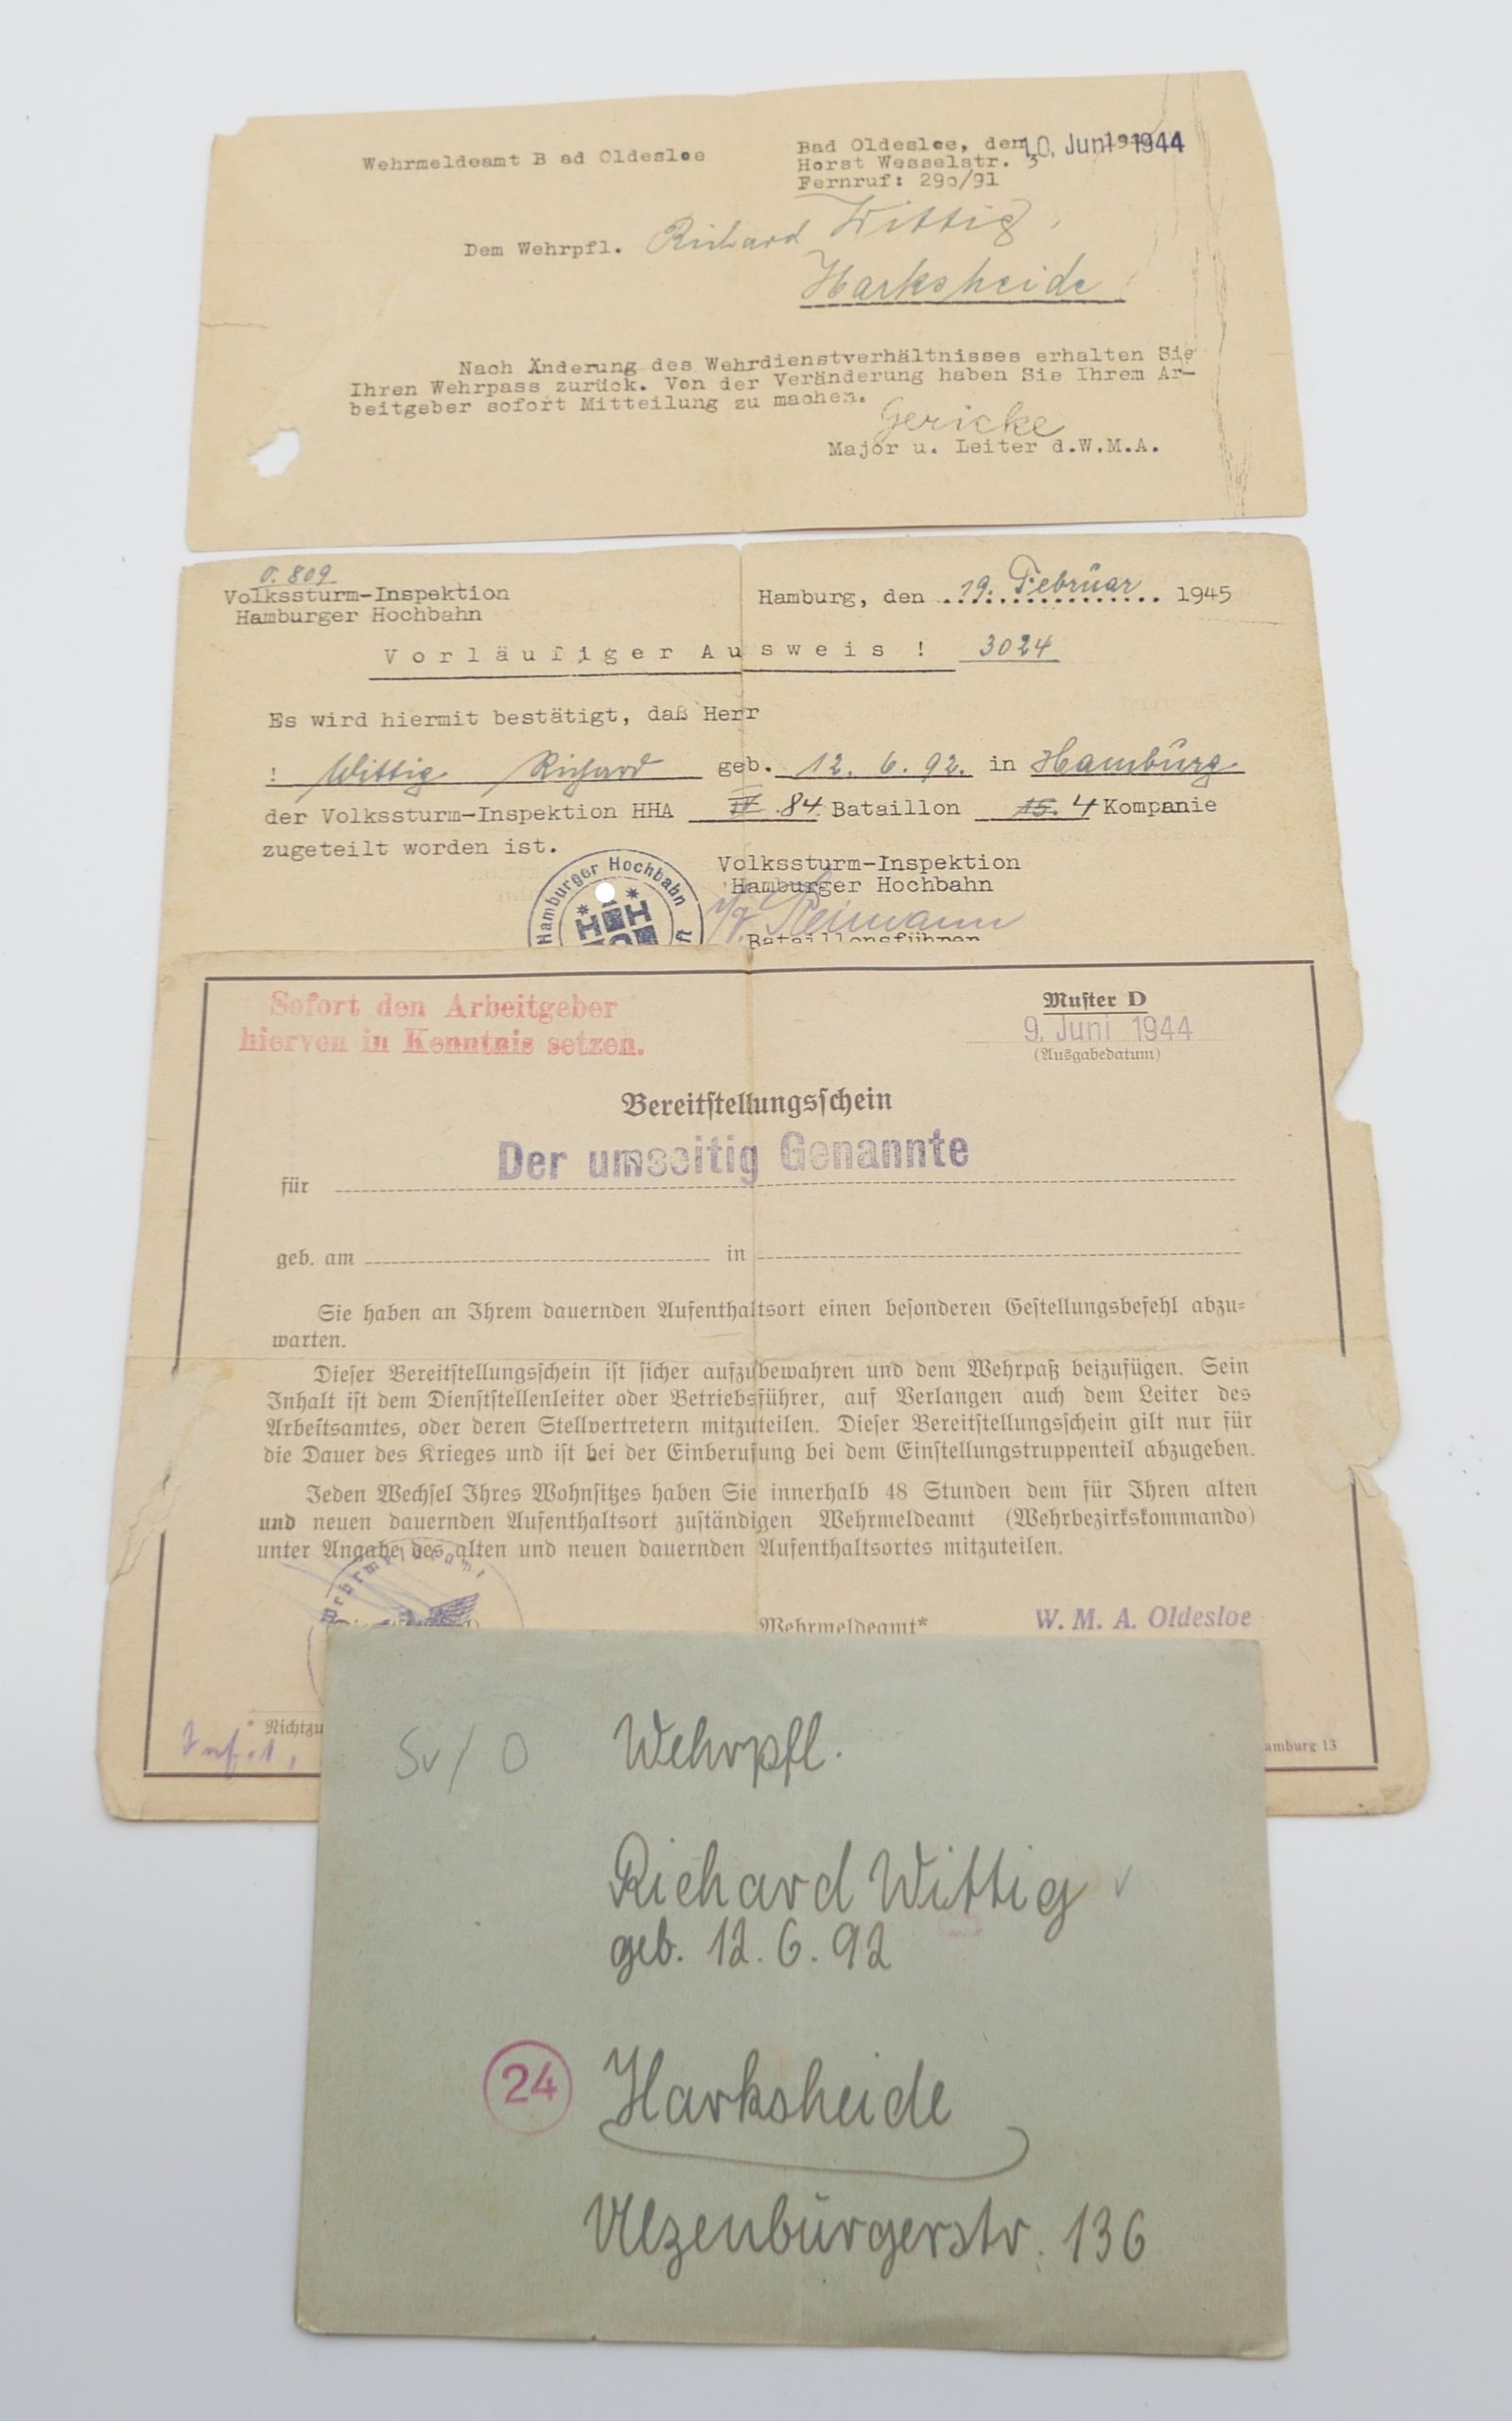 Wehrmeldeamt B ad Oldesloe
Bad Oldesloe, den 10. Juni 1944
Horst Wesselstr. 3
Fernruf: 290/91
Dem Wehrpfl. Richard Wittig,
Harksheide
Nach Änderung des Wehrdienstverhältnisses erhalten Sie
Ihren Wehrpass zurück. Von der Veränderung haben Sie Ihrem Ar-
beitgeber sofort Mitteilung zu machen.
Gericke
Major u. Leiter d.W.M.A.
O. 809
Volkssturm-Inspektion
Hamburger Hochbahn
Hamburg, den 19. Februar 1945
Vorläufiger Ausweis ! 3024
Es wird hiermit bestätigt, daß Herr
! Wittig Richard geb. 12. 6. 92. in Hamburg
der Volkssturm-Inspektion HHA IV 84. Bataillon 15. 4 Kompanie
zugeteilt worden ist.
Hamburger Hochbahn
HH
Volkssturm-Inspektion
Hamburger Hochbahn
Reimann
Bataillonsführer
Sofort den Arbeitgeber
hiervon in Kenntnis setzen.
Muster D
9. Juni 1944
(Ausgabedatum)
Bereitstellungsschein
Der umseitig Genannte
für
geb. am in
Sie haben an Ihrem dauernden Aufenthaltsort einen besonderen Gestellungsbefehl abzu-
warten.
Dieser Bereitstellungsschein ist sicher aufzubewahren und dem Wehrpaß beizufügen. Sein
Inhalt ist dem Dienststellenleiter oder Betriebsführer, auf Verlangen auch dem Leiter des
Arbeitsamtes, oder deren Stellvertretern mitzuteilen. Dieser Bereitstellungsschein gilt nur für
die Dauer des Krieges und ist bei der Einberufung bei dem Einstellungstruppenteil abzugeben.
Jeden Wechsel Ihres Wohnsitzes haben Sie innerhalb 48 Stunden dem für Ihren alten
und neuen dauernden Aufenthaltsort zuständigen Wehrmeldeamt (Wehrbezirkskommando)
unter Angabe des alten und neuen dauernden Aufenthaltsortes mitzuteilen.
Wehrmeldeamt
Wehrmeldeamt* W. M. A. Oldesloe
* Nichtzu
amburg 13
Sv / O
Wehrpfl.
Richard Wittig
geb. 12. 6. 92
24 Harksheide
Ulzenburgerstr. 136